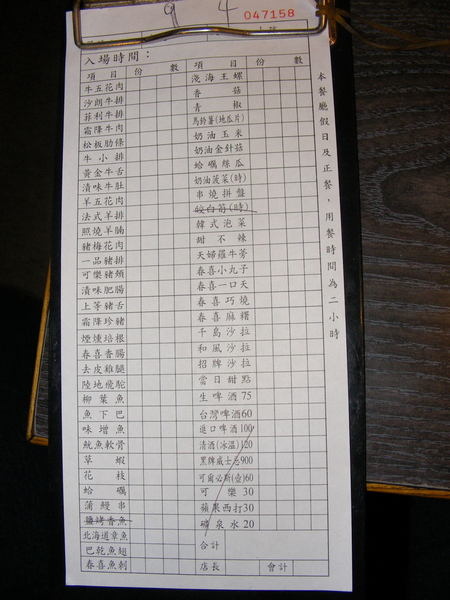 9 4
047158
入場時間：
項 目 份 數
牛五花肉
沙朗牛排
菲利牛排
霜降牛肉
松板肋條
牛小排
黃金牛舌
漬味牛肚
羊五花肉
法式羊排
照燒羊腩
豬梅花肉
一品豬排
可樂豬頰
漬味肥腸
上等豬舌
霜降珍豬
煙燻培根
春喜香腸
去皮雞腿
陸地傀駝
柳葉魚
魚下巴
味增魚
魷魚軟骨
草蝦
花枝
蛤蠣
蒲鰻串
鹽烤香魚
北海道章魚
巴乾魚翅
春喜魚刺
項 目 份 數
淺海王螺
香菇
青椒
馬鈴薯(地瓜片)
奶油玉米
奶油金針菇
蛤蠣絲瓜
奶油菠菜(時)
串燒拼盤
皎白筍(時)
韓式泡菜
甜不辣
天婦羅牛蒡
春喜小丸子
春喜一口天
春喜巧燒
春喜麻糬
千島沙拉
和風沙拉
招牌沙拉
當日甜點
生啤酒75
台灣啤酒60
進口啤酒100
清酒(冰溫)120
黑牌威士忌900
可爾必斯(壺)60
可樂30
蘋果西打30
礦泉水20
合計
店長 會計
本餐廳假日及正餐，用餐時間為二小時